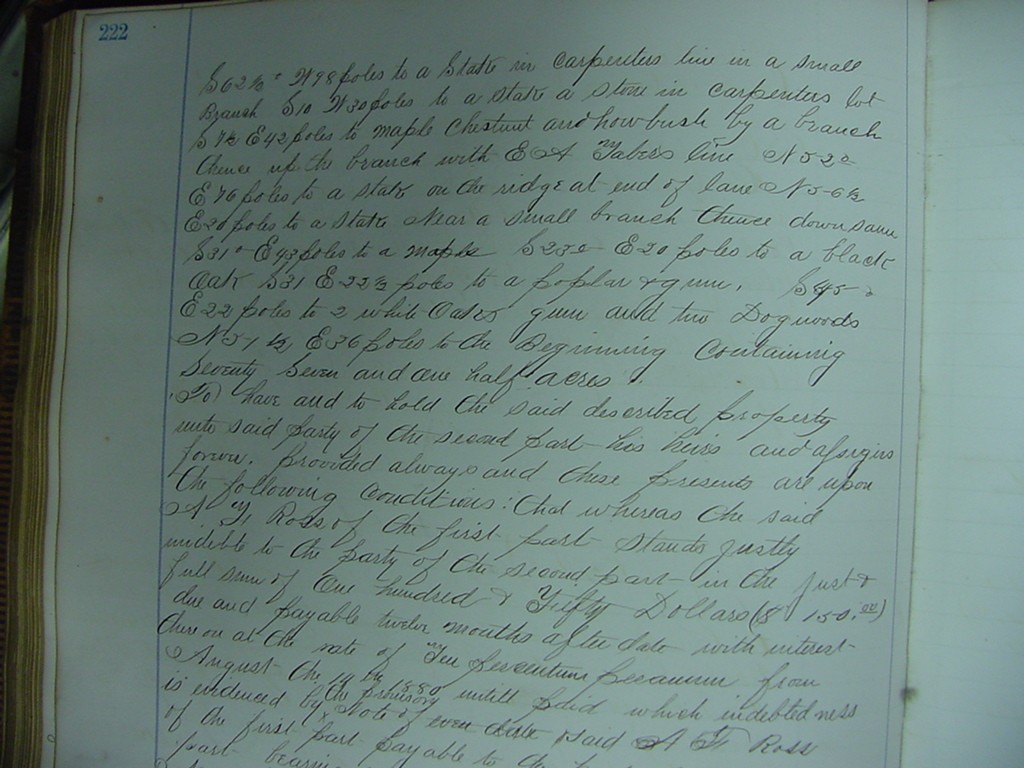 222
S 62½° W 98 poles to a Stake in Carpenters line in a small
Branch S 10 W 30 poles to a stake a stone in Carpenters lot
E 42 poles to maple Chestnut and by a branch
thence up the branch with E A Tabers line N 52°
E 76 poles to a stake on the ridge at end of lane N 56½
E 20 poles to a Stake Near a small branch thence down same
S 31° E 43 poles to a maple S 23° E 20 poles to a black
Oak S 31 E 22½ poles to a poplar & gum, S 45°
E 22 poles to 2 white Oaks gum and two Dogwoods
N 51½ E 36 poles to the Beginning Containing
Seventy Seven and one half acres.
To have and to hold the said described property
unto said party of the second part his heirs and assigns
forever. provided always and these presents are upon
the following Conditions: that whereas the said
A Ross of the first part Stands justly
indebte to the party of the second part in the just &
full sum of One hundred & Fifty Dollars ($ 150.00)
due and payable twelve months after date with interest
thereon at the rate of Ten per centum per annum from
August the 14th 1880 untill paid which indebtedness
is evidenced by the promisory Note of even date said A Ross
of the first part payable to the
part bearing